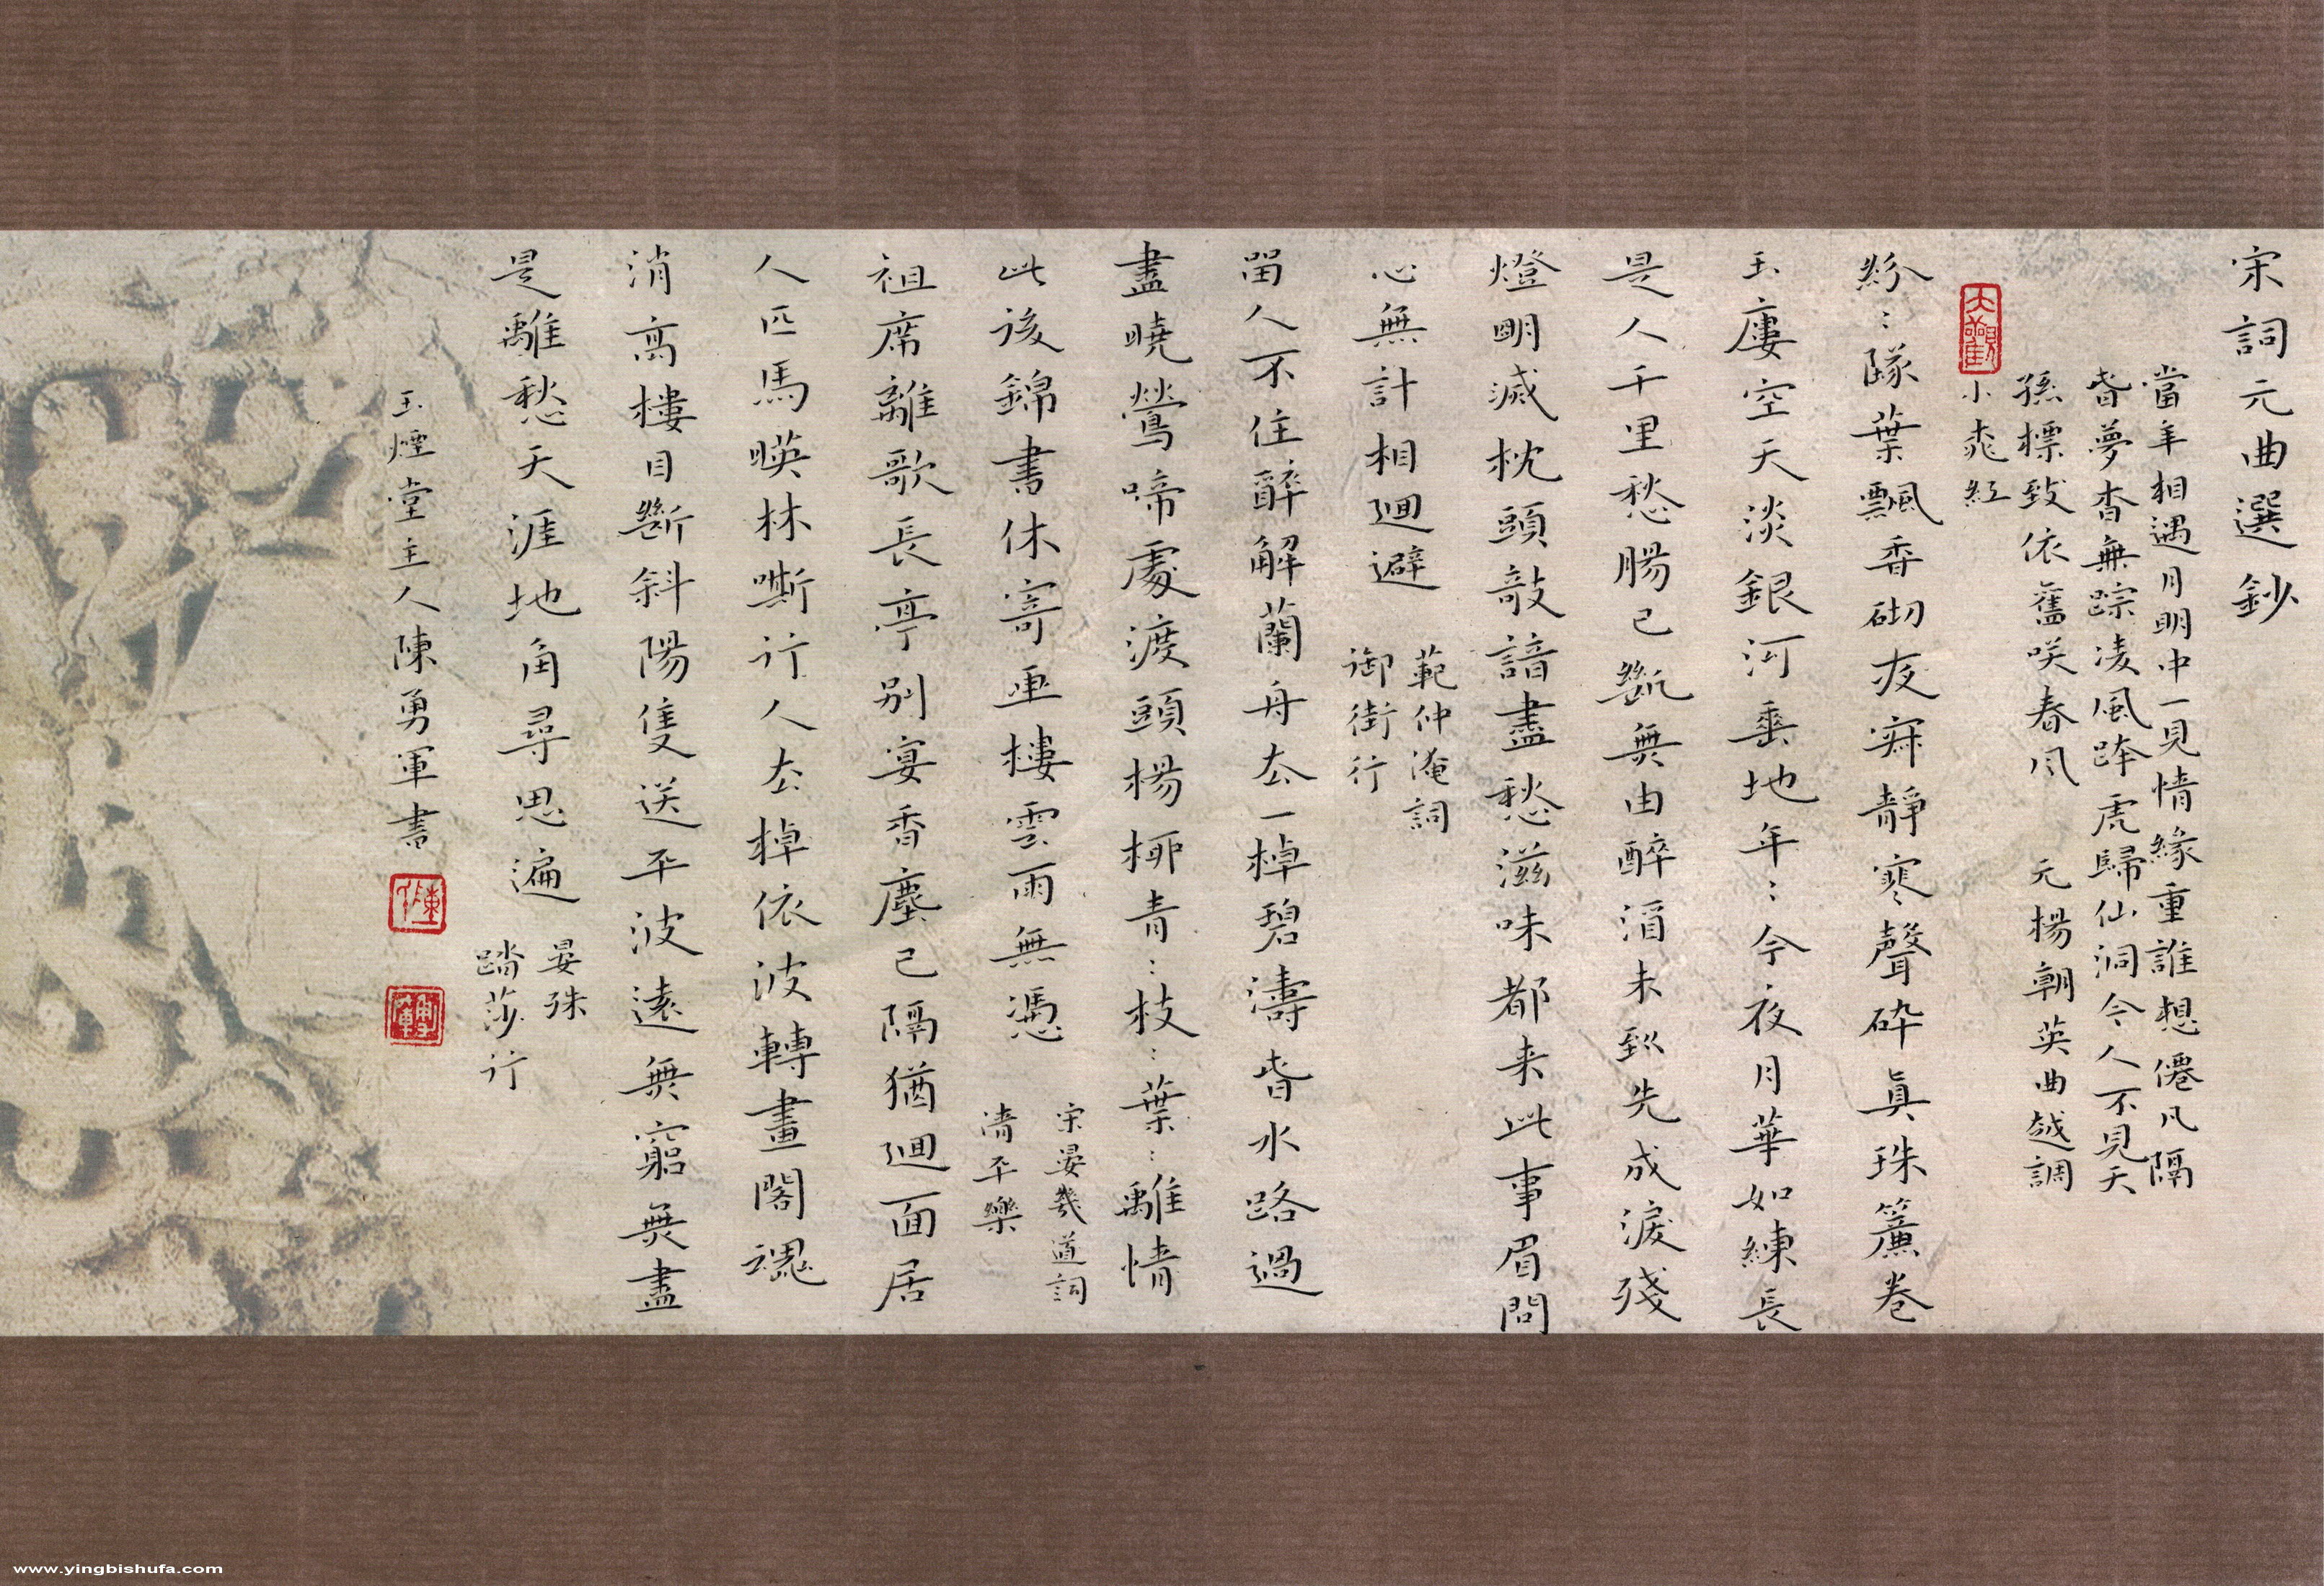 宋詞元曲選鈔
當年相遇月明中一見情緣重誰想僊凡隔
昏夢杳無踪凌風跨虎歸仙洞今人不見天
孫標致依舊咲春風 元楊朝英曲越調
小桃紅
紛〻墜葉飄香砌夜寂靜寒聲碎真珠簾卷
玉廔空天淡銀河垂地年〻今夜月華如練長
是人千里愁腸已斷無由醉酒未到先成淚殘
燈明滅枕頭敧諳盡愁滋味都来此事眉間
心無計相迴避
範仲淹詞
御街行
留人不住醉解蘭舟去一棹碧濤春水路過
盡曉鶯啼處渡頭楊柳青〻枝〻葉〻離情
此後錦書休寄畫樓雲雨無憑
宋晏幾道詞
清平樂
祖席離歌長亭別宴香塵已隔猶迴面居
人匹馬暎林嘶行人去棹依波轉畫閣魂
消高樓目斷斜陽隻送平波遠無窮無盡
是離愁天涯地角尋思遍
晏殊
踏莎行
玉煙堂主人陳勇軍書
www.yingbishufa.com